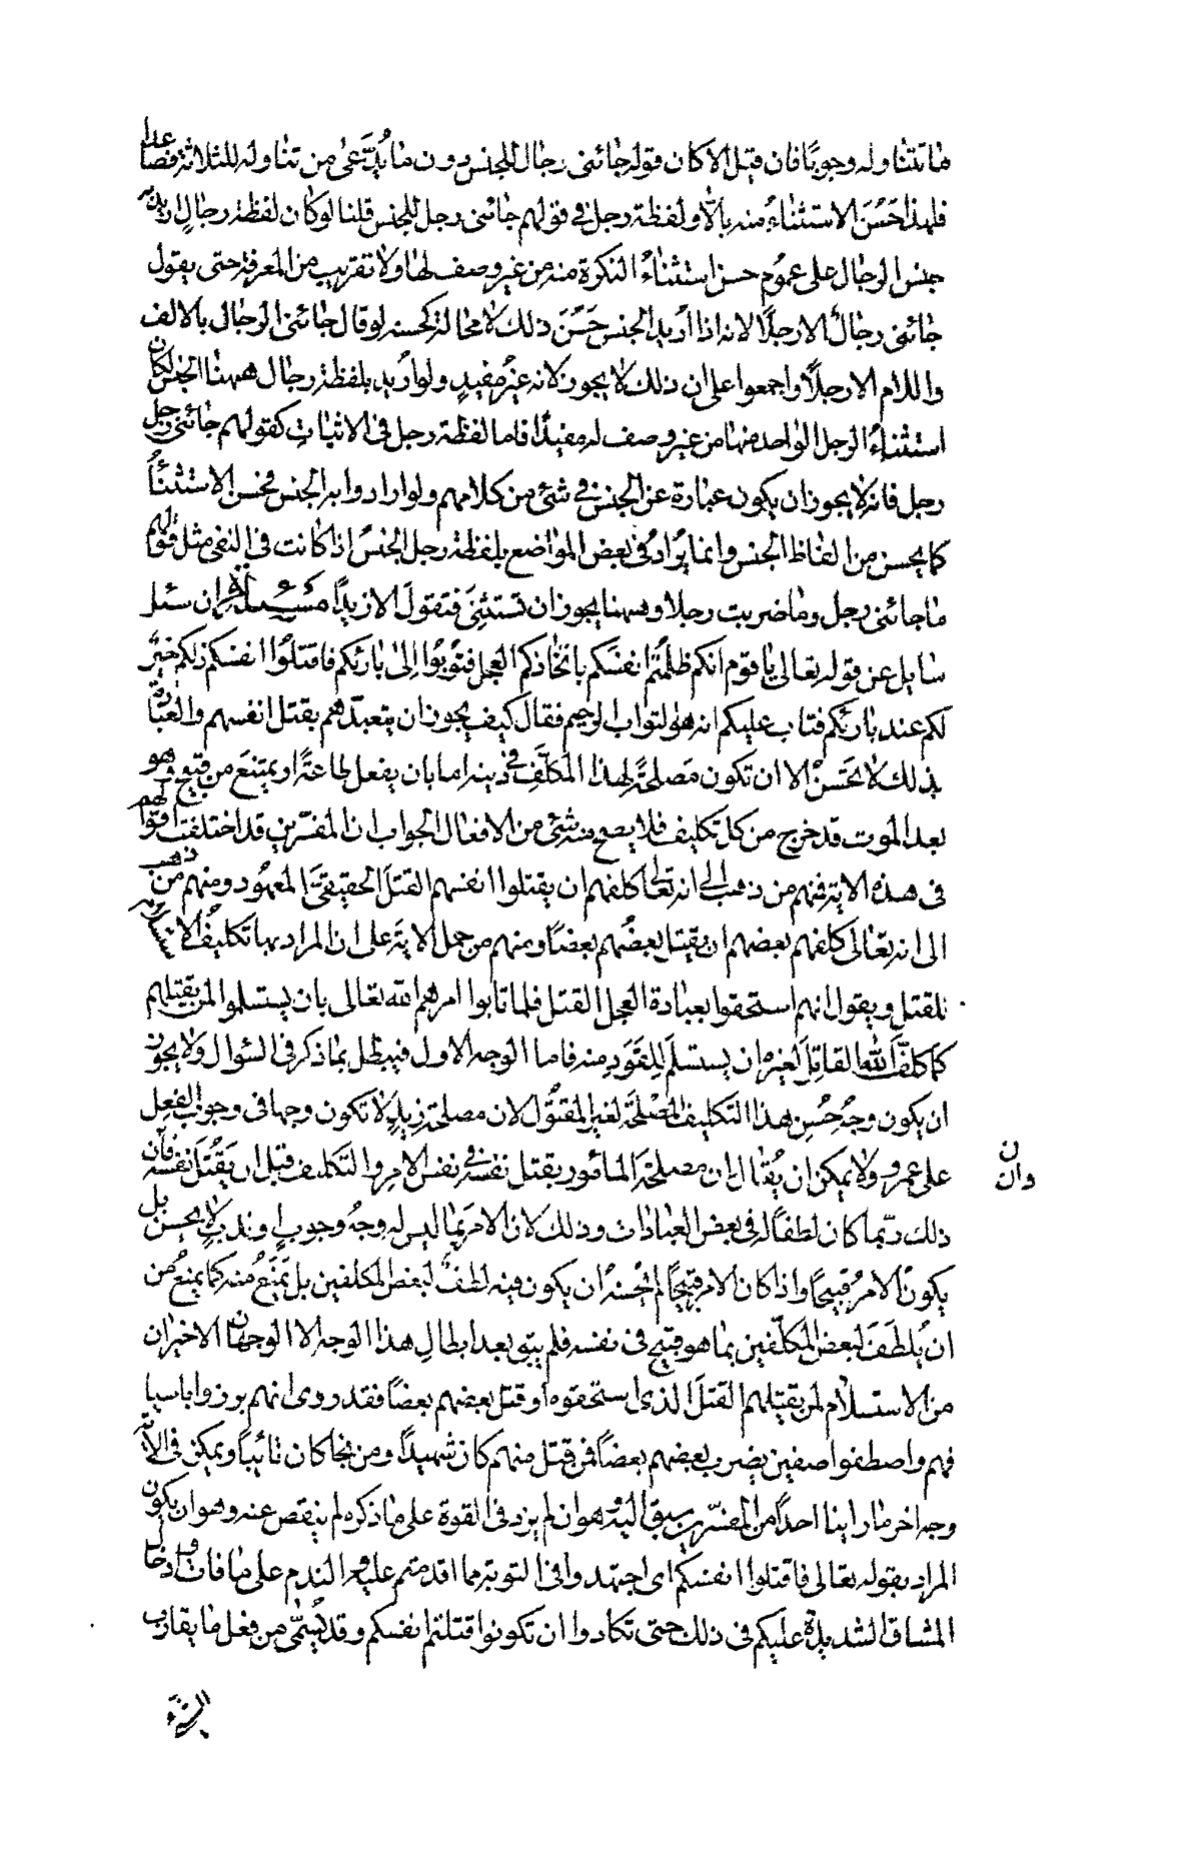 ما تتناوله وجوبًا فان قيل الا كان قوله جائنى رجال للجنس دون ما يُدَّعى من تناوله للثلاثة فصاعدا
فلهذا حَسُنَ الاستثناءُ منه بالّا ولفظة رجل فى قولهم جائنى رجل للجنس قلنا لو كان لفظة رجالٍ اريد به
جنس الرجال على عموم حسن استثناءُ النكرة منه من غير وصف لها ولا تقريب من المعرفة حتى يقول
جائنى رجالٌ الا رجلًا لانه اذا اُريد الجنس حَسُنَ ذلك لا محالة كحسنه لو قال جائنى الرجال بالالف
واللام الا رجلًا واجمعوا على ان ذلك لا يجوز لانه غيرُ مفيدٍ ولو اُريد بلفظة رجال ههنا الجنس لكان
استثناءُ الرجل الواحد منها من غير وصف له مفيدًا فاما لفظة رجل فى الاثبات كقولهم جائنى رجل
رجل فانه لا يجوز ان يكون عبارة عن الجنس فى شئ من كلامهم ولو ارادوا به الجنس لحسن الاستثناءُ
كما يحسن من الفاظ الجنس وانما يُرادُ فى بعض المواضع بلفظة رجل الجنسُ اذا كانت فى النفى مثل قولهم
ما جائنى رجل وما ضربت رجلا وههنا يجوز ان تستثنِىَ فتقولَ الا زيدًا مسئلة اخرى ان سئل
سايل عن قوله تعالى يا قوم انكم ظلمتُم انفسَكم باتّخاذكم العجل فتُوبُوا اِلىٰ بارئكم فاقتلُوا انفسكم ذلكم خيرٌ
لكم عند بارئكم فتاب عليكم انه هو التواب الرحيم فقال كيف يجوز ان يتعبدهم بقتل انفسهم والعبادة
بذلك لا تحسُنُ الا ان تكون مَصلحةً لهذا المكلَّف فى دينه اما بان يفعل طاعةً او يمتنعَ من قبيح وهو
بعد الموت قد خرج من كل تكليف فلا يصح منه شئ من الافعال الجواب ان المفسّرين قد اختلفت اقوالهم
فى هذه الاية فمنهم من ذهب الى انه تعالى كلفهم ان يقتلوا انفسهم القتلَ الحقيقىَّ المعهود ومنهم من ذهب
الى انه تعالى كلفهم بعضهم ان يقتل بعضُهم بعضًا ومنهم من حمل الايةَ على ان المراد بها تكليفُ الاستسلام
للقتل ويقول انهم استحقوا بعبادة العجل القتل فلما تابوا امرهم الله تعالى بان يستسلموا لمن يقتلهم
كما كلّفَ اللهُ القاتِلَ لغيره ان يستسلم لِلقَوَدِ منه فاما الوجه الاول فيبطل بما ذكر فى السُوال ولا يجوز
ان يكون وجهُ حُسنِ هذا التكليف المصْلحَةَ لغير المقتُول لان مصلحة زيدٍ لا تكون وجها فى وجوب الفعل
على عمرو ولا يمكن ان يُقال ان مصلحة المامور بقتل نفسه فى نفس الامر والتكليف قبل ان يَقْتُلَ نفسه فان
وان
ذلك ربّما كان لطفًا له فى بعض العبادات وذلك لان الامرَ بما ليس له وجهُ وجوبٍ او ندبٍ لا يحسن بل
يكون الامرُ قبيحًا واذا كان الامر قبيحًا لم يُحَسّنهُ ان يكون فيه لطفٌ لبعض المكلفين بل يَمنعُ منه كما يمنعُ من
ان يُلطَفَ لبعض المكلّفين بما هو قبيح فى نفسه فلم يبق بعد ابطالِ هذا الوجه الا الوجهان الاخيران
من الاستسلام لمن يقتلهم القتلَ الذى استحقوه او قتل بعضهم بعضًا فقد روى انهم برزوا باسيا
فهم واصطفوا صفين يضرب بعضهم بعضًا فمن قتل منهم كان شهيدًا ومن نجا كان تائبًا ويمكن فى الآية
وجه اخر ما راينا احدًا من المفسّرين سبق اليه وهو ان لم يزد فى القوة على ما ذكره لم ينقص عنه وهو ان يكون
المراد بقوله تعالى فاقتلوا انفسكم اى اجتهدوا فى التوبة مما اقدمتم عليه والندم على ما فات وادخال
المشاق الشديدة عليكم فى ذلك حتى تكادوا ان تكونوا قتلتم انفسكم وقد يُسمّى من فعل ما يقارب
الشئ